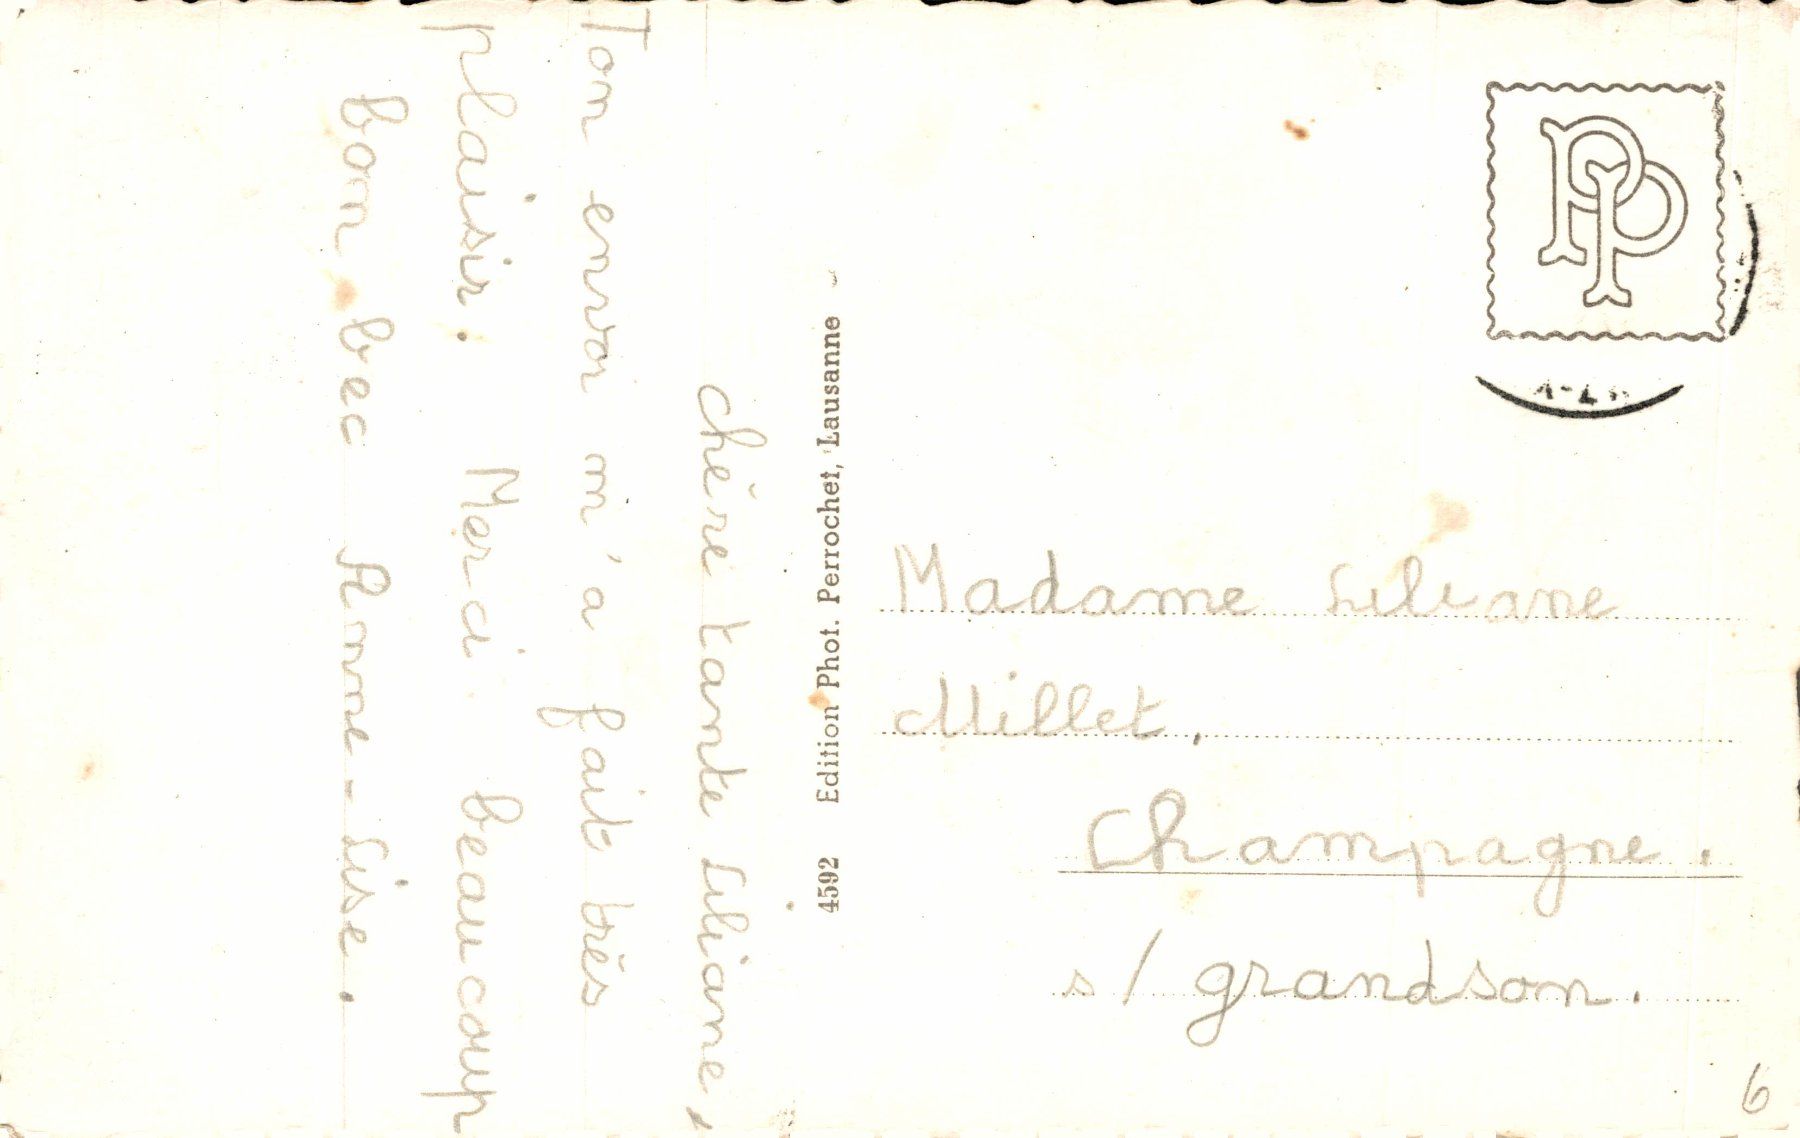 chère tante Liliane,
Ton envoi m'a fait très
plaisir. Merci beaucoup
bon bec Anne-Lise.
4592 Edition Phot. Perrochet, Lausanne
PP
Madame Liliane
Millet,
Champagne.
s/ grandson.
6